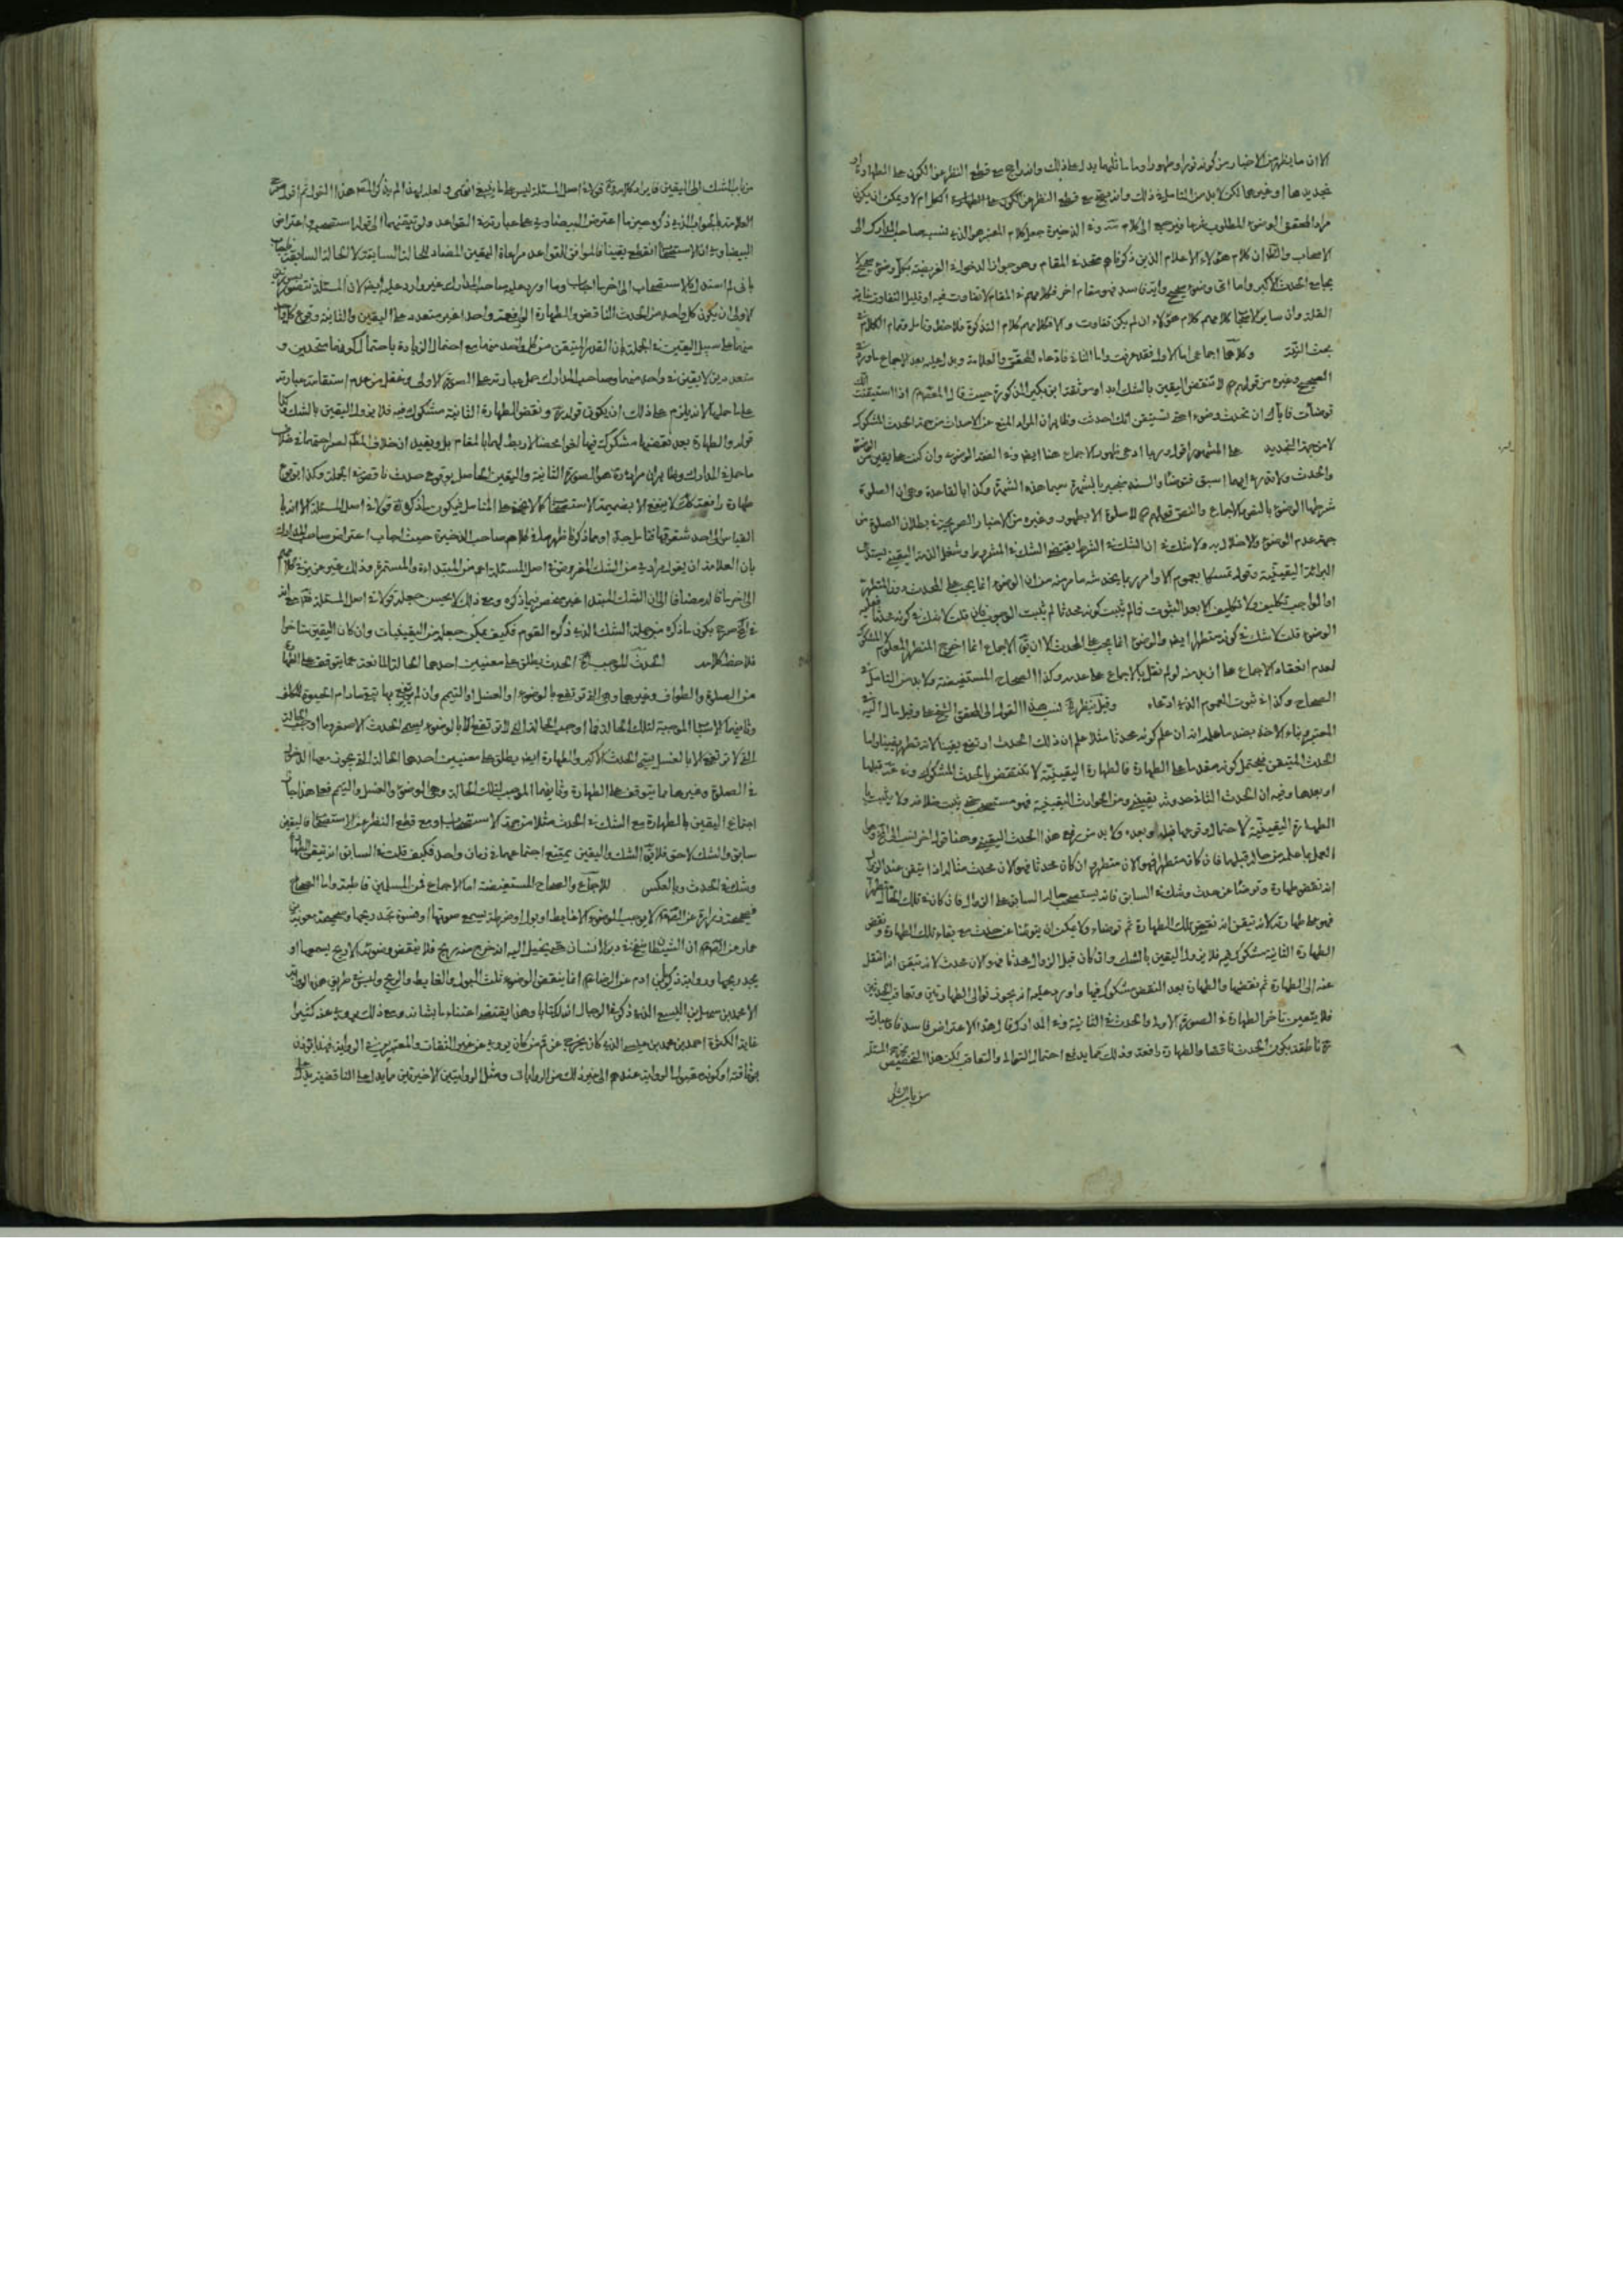 الا ان ما يظهر من الاخبار من كونه نورا وطهورا وما ماثلهما يدل على ذلك وانه راجح مع قطع النظر عن الكون على الطهارة او
تجديدها او غيرها لكن لا بد من التامل في ذلك وانه يصح مع قطع النظر عن الكون على الطهارة ام لا ويمكن ان يكون
مراد المحقق الوضوء المطلوب فيرجع الى كلام وفي الذخيرة جعل كلام المعتبر هو الذي نسبه صاحب المدارك الى
الاصحاب والظ ان كلام هؤلاء الاعلام الذين ذكرناهم متحد في المقام وهو جواز الدخول في الفريضة بكل وضوء صحيح لا
يجامع الحدث الاكبر واما اى وضوء صحيح وايه فاسد فهو مقام اخر فكلامهم في المقام لا تفاوت فيه او قليل التفاوت غاية
القلة وان كلامهم كلام هؤلاء ان لم يكن تفاوت والا فكلامهم كلام التذكرة فلاحظ وتامل وتمام الكلام في
بحث النية وكلاهما اجماعي اما الاول فقد عرفت واما الثاني فادعاه المحقق والعلامة ويدل عليه بعد الاجماع ما ورد في
الصحيح وغيره من قولهم لا تنقض اليقين بالشك ابدا وموثقة ابن بكير المذكورة حيث قال اذا استيقنت انك
توضأت فاياك ان تحدث وضوءا حتى تستيقن انك احدث وظاهر ان المراد المنع عن الاحداث من جهة الحدث المشكوك
لا من جهة التجديد على المشهور اقول وربما ادعى ظهور الاجماع هنا ايضا وفي الفقه الرضوي وان كنت على يقين من الوضوء
والحدث ولا تدري ايهما اسبق فتوضأ والسند منجبر بالشهرة سيما هذه الشهرة وكذا بالقاعدة وهي ان الصلوة
شرطها الوضوء بالنص والاجماع والنص قولهم لا صلوة الا بطهور وغيره من الاخبار الصريحة في بطلان الصلوة من
جهة عدم الوضوء والاخلال به ولا شك في ان الشك في الشرط يقتضى الشك في المشروط وشغل الذمة اليقيني يستدعى
البرائة اليقينية وقوله تمسكا بعموم الاوامر ربما يخدشه ما مر منه من ان الوضوء انما يجب على المحدث دون المتطهر
او الواجب تكليف ولا تكليف الا بعد الثبوت فما لم يثبت كونه محدثا لم يثبت الوجوب فان قلت لا شك في كونه محدثا فعليه
الوضوء قلت لا شك في كونه متطهرا ايضا والوضوء انما يجب على المحدث الا ان يقال الاجماع انما اخرج المتطهر المعلوم لا المشكوك
لعدم انعقاد الاجماع على ازيد منه لو لم نقل بالاجماع على عدمه وكذا الصحاح المستفيضة ولا بد من التامل في
الصحاح وكذا في ثبوت العموم الذي ادعاه وقيل ينظر نسب هذا القول الى المحقق الشيخ على وقيل مال اليه في
المعتبر بناء الاخذ بضد ما علمه انه ان علم كونه محدثا مثلا علم ان ذلك الحدث ارتفع يقينا لانه تطهر يقينا واما
الحدث المتيقن فيحتمل كونه مقدما على الطهارة فالطهارة اليقينية لا تنتقض بالحدث المشكوك وقوعه قبلها
او بعدها وفيه ان الحدث الثاني حدوثه يقيني ومن الحوادث اليقينية فهو مستصحب حتى يثبت خلافه ولا يثبت
الطهارة اليقينية لاحتمال وقوعها قبله او بعده ولا بد من رفع هذا الحدث اليقيني وهنا قول اخر نسب الى العلامة وهو
العمل بما علم من حاله قبلهما فان كان متطهرا فهو الان متطهر وان كان محدثا فهو الان محدث مثاله اذا تيقن عند الزوال
انه نقض طهارة وتوضأ عن حدث وشك في السابق فانه يستصحب حاله السابق على الزوال فان كان في تلك الحال متطهرا
فهو على طهارته لانه تيقن انه نقض تلك الطهارة ثم توضاء ولا يمكن ان يتوضأ عن حدث مع بقاء تلك الطهارة ونقض
الطهارة الثانية مشكوك فيه فلا يزول اليقين بالشك وان كان قبل الزوال محدثا فهو الان محدث لانه تيقن انه انتقل
عنه الى الطهارة ثم نقضها والطهارة بعد النقض مشكوك فيها واورد عليه انه يجوز توالى الطهارتين وتعاقب الحدثين
فلا يتعين تاخر الطهارة في الصورة الاولى والحدث في الثانية وفي المدارك قال هذا الاعتراض فاسد فان عبارته
ناطقة بكون الحدث ناقضا والطهارة رافعة وذلك مما يدفع احتمال التوالى والتعاقب لكن هذا التخصيص يخرج المسئلة
من باب الشك
من باب الشك الى اليقين اصل المسئلة ليس على ما ينبغي هذا القول ثم اقول
العلامة ذكره حين ما اعترض البيضاوي على عبارته في القواعد ولو تيقنهما الى قوله استصحب واعتراض
البيضاوي ان الاستصحاب انقطع يقينا فالموافق للقواعد مراعاة اليقين المضاد للحالة السابقة لا الحالة السابقة
بانى لم استدل بالاستصحاب الى اخر ما اجاب وما اورد عليه صاحب المدارك غير وارد عليه ايضا لان المسئلة تتصور
الاولى ان يكون كل واحد من الحدث الناقض والطهارة الرافعة واحدا غير متعدد على اليقين والثانية وقوع كل
منهما على سبيل اليقين في الجملة بان القدر المتيقن من كل واحد منهما مع احتمال الزيادة باحتمال كونهما متحدين و
متعددين لا يقين في واحد منهما وصاحب المدارك حمل عبارته على الصورة الاولى وغفل من عدم استقامة عبارته
على ما حملها لانه يلزم على ذلك ان يكون قوله ونقض الطهارة الثانية مشكوك فيه فلا يزول اليقين بالشك وكذا
قوله والطهارة بعد نقضها مشكوك فيها لغوا محضا لا ربط لهما بالمقام بل ويفيد ان خلاف
ما حمله المدارك وظاهر ان مراده هو الصورة الثانية واليقين الحاصل بوقوع حدث ناقض في الجملة وكذا وقوع
طهارة رافعة كذلك لا ينفع الا بضميمة الاستصحاب كما لا يخفى على المتامل فيكون ما ذكره في اصل المسئلة
القياس الى احد شقوقها فتامل جدا ومما ذكرنا ظهر ما في كلام صاحب الذخيرة حيث اجاب اعتراض صاحب المدارك
بان العلامة ان يقول مرادي من الشك المفروض في اصل المسئلة اعم من المبتداءة والمستمرة وذلك غير عزيز في كلامهم
الى اخر ما قال مضافا الى ان الشك المبتدأ غير منحصر فيما ذكره ومع ذلك لا يحسن جعله قولا في اصل المسئلة
يكون ما ذكره من جملة الشك الذي ذكره القوم فكيف يمكن جعله من اليقينيات وان كان اليقين متاخرا
فلاحظ كلامه الحدث الموجب الحدث يطلق على معنيين احدهما الحالة المانعة عما يتوقف على الطهارة
من الصلوة والطواف وغيرها وهى التي ترتفع بالوضوء او الغسل او التيمم
وثانيهما الاسباب الموجبة لتلك الحالة فما اوجب الحالة التي لا ترتفع الا بالوضوء يسمى الحدث الاصغر وما اوجب الحالة
التي لا ترتفع الا بالغسل يسمى الحدث الاكبر والطهارة ايضا يطلق على معنيين احدهما الحالة التي يجوز معها الدخول
في الصلوة وغيرها مما يتوقف على الطهارة وثانيهما الموجب لتلك الحالة وهى الوضوء والغسل والتيمم فعلى هذا جاز
اجتماع اليقين بالطهارة مع الشك في الحدث مثلا من جهة الاستصحاب ومع قطع النظر عن الاستصحاب فاليقين
سابق والشك لاحق فلا يقال الشك واليقين يمتنع اجتماعهما في زمان واحد فكيف قلت في السابق انه تيقن الطهارة
وشك في الحدث وبالعكس للاجماع والصحاح المستفيضة اما الاجماع فمن المسلمين قاطبة واما الصحاح
فصحيحة زرارة عن الصادق لا يوجب الوضوء الا غايط او بول او ضرطة يسمع صوتها او فسوة تجد ريحها وصحيحة معوية بن
عمار عن الصادق ان الشيطان ينفخ في دبر الانسان حتى يخيل اليه انه خرج منه ريح فلا ينقض وضوئه الا ريح يسمعها او
يجد ريحها ورواية زكريا بن ادم عن الرضا انما ينقض الوضوء ثلث البول والغايط والريح وليس في طريق هذه الرواية
الا محمد بن سهل بن اليسع الذي ذكر في الرجال ان له كتابا وهذا يقتضى اعتناء ما بشانه ومع ذلك يروى عنه كثيرا
غاية الكثرة احمد بن محمد بن عيسى الذي كان يخرج عن قم من كان يروى عن غير الثقات والمعتبرين في الرواية
بوثاقته او كونه مقبول الرواية عندهم الى غير ذلك من الروايات ومثل الروايتين الاخيرتين ما يدل على الناقضية